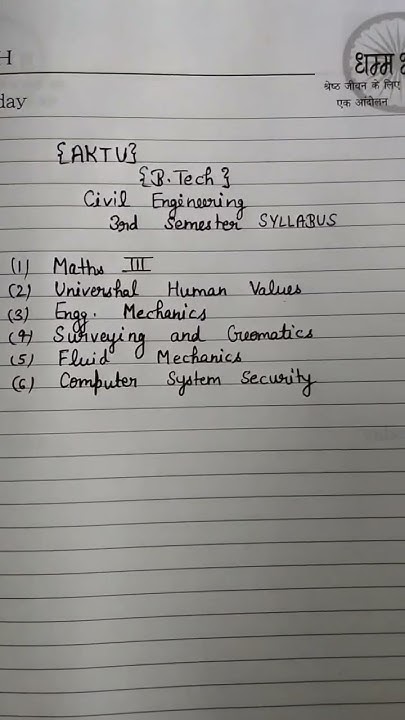 H
धम्म
श्रेष्ठ जीवन के लिए
एक आंदोलन
day
{AKTU}
{B.Tech}
Civil Engineering
3rd Semester SYLLABUS
(1) Maths III
(2) Univershal Human Values
(3) Engg. Mechanics
(4) Surveying and Geomatics
(5) Fluid Mechanics
(6) Computer System Security